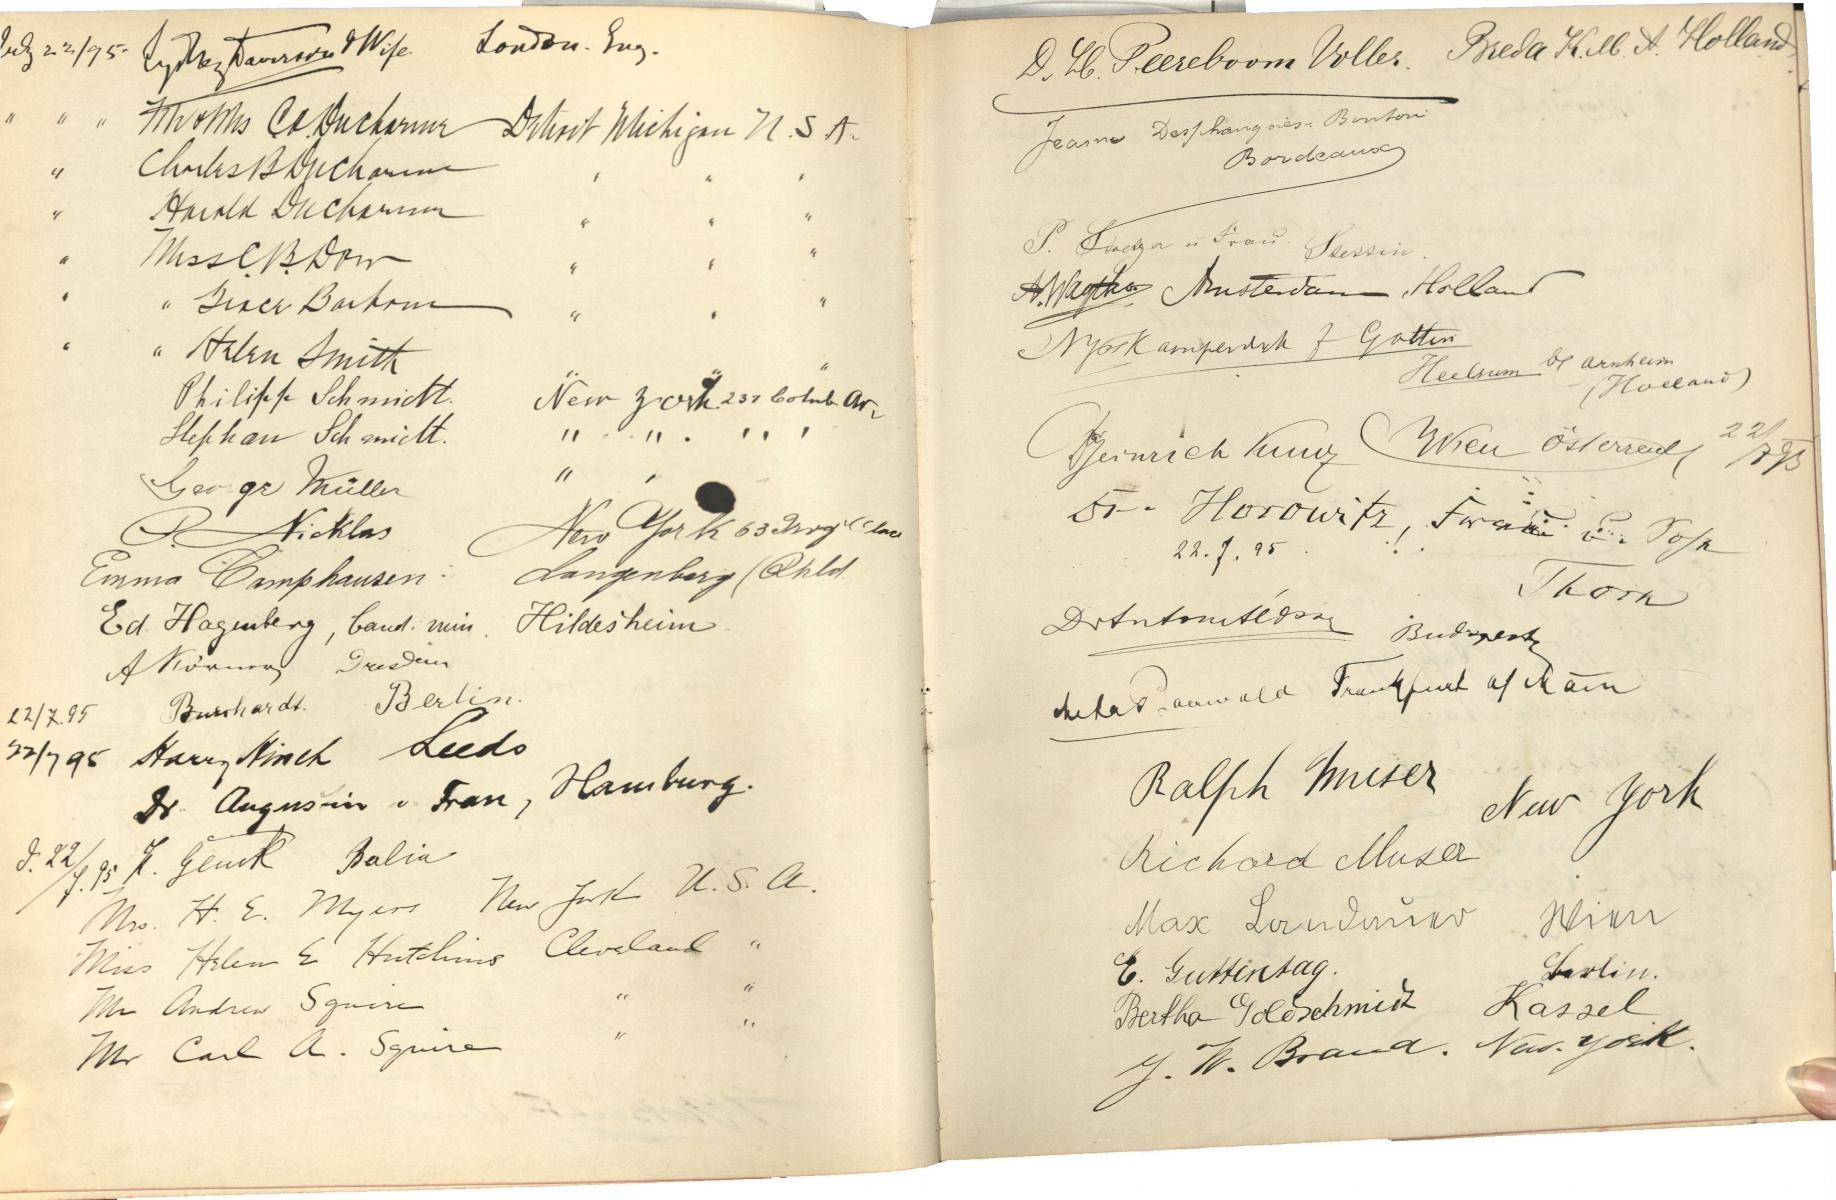 July 22/95- Sydney Davidson & Wife London. Eng.
" " " Mr & Mrs C. A. Ducharme Detroit Michigan U. S. A.
" Charles B Ducharme " " "
" Harold Ducharme " " "
" Miss C. B. Dow " " "
" " Grace Barbour " " "
" " Helen Smith " " "
Philipp Schmidt. New York. 237 Columb Av.
Stephan Schmidt. " " " "
George Müller " "
P. Nicklas New York 63 Irving Place
Emma Camphausen Langenberg (Rhld.
Ed. Hagenberg, cand. min. Hildesheim
A Körner Dresden
22/7.95 Burchardt. Berlin.
22/7 95 Harry Hirsch Leeds
Dr. Augustin u Frau, Hamburg.
d. 22/7. 95 Berlin
Mrs. H. E. Myers New York U. S. A.
Miss Helen E Hutchins Cleveland "
Mr Andrew Squire " "
Mr Carl A. Squire " "
D. H. Peereboom Voller. Breda K. M. A. Holland.
Jeanne
Bordeaux
P. u Frau. Stettin.
Amsterdam, Holland
f Gattin
Heelsum b/ Arnheim
(Holland)
Heinrich Kunz Wien Österreich 22/7 95
Dr. Horowitz, Frau u. Sohn
22. 7. 95
Thorn
Dr Budapest
Frankfurt a/ Main
Ralph Muser
New York
Richard Muser
Max Landauer Wien
E. Guttentag. Berlin.
Bertha Goldschmidt Kassel
J. W. Brand. New-York.